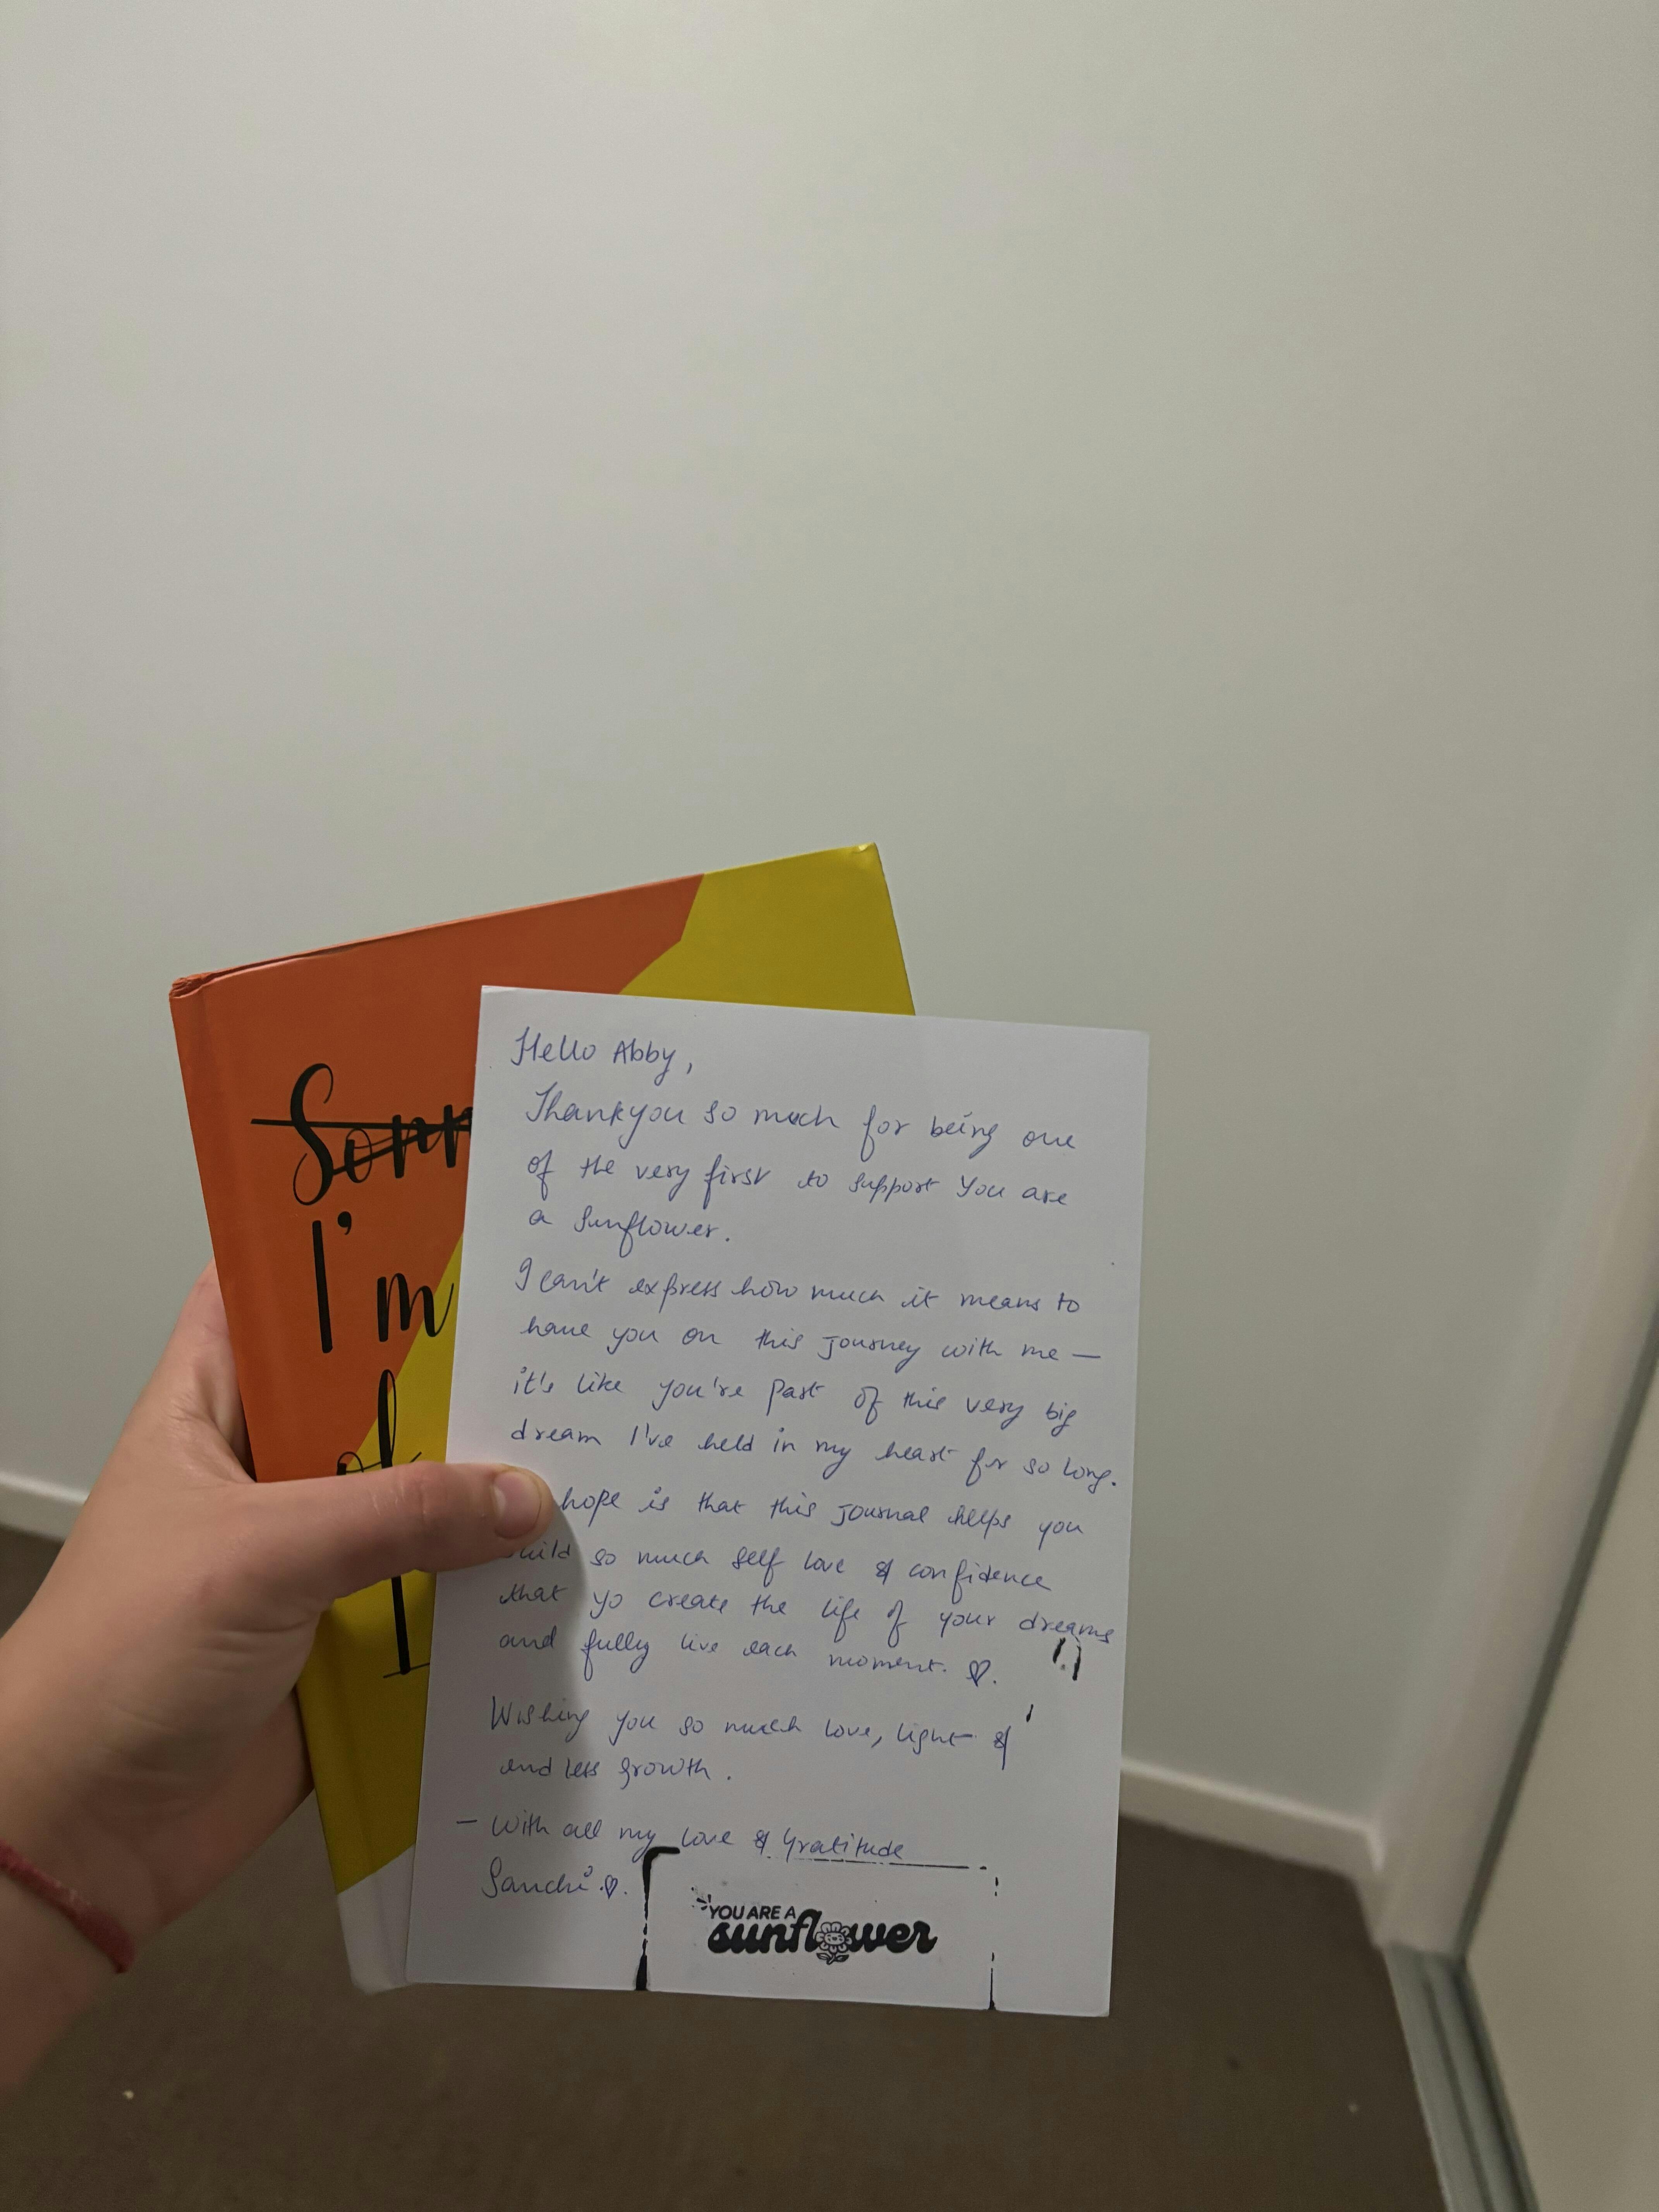 I'm
of
Hello Abby,
Thankyou so much for being one
of the very first to support You are
a Sunflower.
I can't express how much it means to
have you on this journey with me —
it's like you're part of this very big
dream I've held in my heart for so long.
hope is that this journal helps you
so much self love & confidence
that yo create the life of your dreams
and fully live each moment. ♡.
Wishing you so much love, light &
endless growth.
— With all my love & Gratitude
Sanchi ♡.
YOU ARE A
sunflower